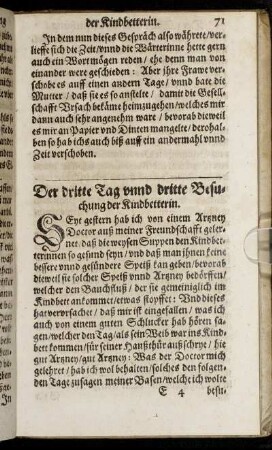 der Kindbetterin. 71
In dem nun dieses Gespräch also währete/ver-
lieffe sich die Zeit/vnnd die Wärterinne hette gern
auch ein Wort mögen reden / ehe denn man von
einander were geschieden: Aber jhre Frawe ver-
schobe es auff einen andern Tage / vnnd bate die
Mutter / daß sie es so anstelte / damit die Gesell-
schafft Vrsach bekäme heimzugehen/welches mir
dann auch sehr angenehm ware / bevorab dieweil
es mir an Papier vnd Dinten mangelte / derohal-
ben so hab ich es auch biß auff ein andermahl vnnd
Zeit verschoben.
Der dritte Tag vnnd dritte Besu-
chung der Kindbetterin.
SEyt gestern hab ich von einem Artzney
Doctor auß meiner Freundschafft geler-
net / daß die weysen Suppen den Kindbet-
terinnen so gesund seyn / vnd daß man jhnen keine
bessere vnnd gesündere Speiß kan geben / bevorab
dieweil sie solcher Speiß vnd Artzney bedörffen/
welcher den Bauchfluß / der sie gemeiniglich im
Kindbett ankommet / etwas stopffet: Vnd dieses
hat verursachet / daß mir ist eingefallen / was ich
auch von einem guten Schlucker hab hören sa-
gen / welcher den Tag / als sein Weib war ins Kind-
bett kommen / für seiner Haußthür außschrye / hie
gut Artzney / gut Artzney: Was der Doctor mich
gelehret / hab ich wol behalten / solches den folgen-
den Tag zusagen meiner Basen / welche ich wolte
E 4 besu-